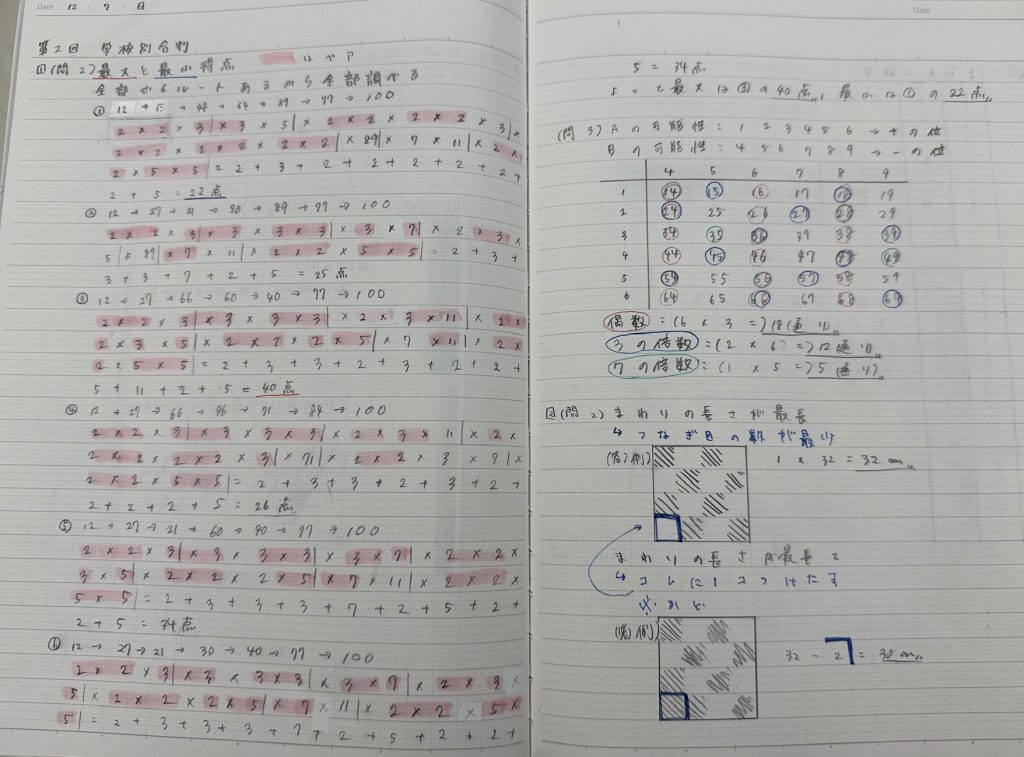 Date 12 . 7 . 日
第2回 学校別合判
1(問2)最大と最小得点 はペア
全部で6ルートあるから全部調べる
① 12 → 15 → 48 → 64 → 89 → 77 → 100
2 × 2 × 3 | × 3 × 5 | × 2 × 2 × 2 × 2 × 3 | ×
2 × 2 × 2 × 2 × 2 × 2 | × 89 | × 7 × 11 | × 2 ×
2 × 5 × 5 | = 2 + 3 + 2 + 2 + 2 + 2 +
2 + 5 = 22点
② 12 → 27 → 21 → 90 → 89 → 77 → 100
2 × 2 × 3 | × 3 × 3 × 3 | × 3 × 7 | × 2 × 3 ×
5 | × 89 | × 7 × 11 | × 2 × 2 × 5 × 5 | = 2 + 3 +
3 + 3 + 7 + 2 + 5 = 25点
③ 12 → 27 → 66 → 60 → 40 → 77 → 100
2 × 2 × 3 | × 3 × 3 × 3 | × 2 × 3 × 11 | × 2 ×
2 × 3 × 5 | × 2 × 2 × 2 × 5 | × 7 × 11 | × 2 ×
2 × 5 × 5 | = 2 + 3 + 3 + 2 + 3 + 2 + 2 +
5 + 11 + 2 + 5 = 40点
④ 12 → 27 → 66 → 96 → 71 → 84 → 100
2 × 2 × 3 | × 3 × 3 × 3 | × 2 × 3 × 11 | × 2 ×
2 × 2 × 2 × 2 × 3 | × 71 | × 2 × 2 × 3 × 7 | ×
2 × 2 × 5 × 5 | = 2 + 3 + 3 + 2 + 3 + 2 +
2 + 2 + 2 + 5 = 26点
⑤ 12 → 27 → 21 → 60 → 40 → 77 → 100
2 × 2 × 3 | × 3 × 3 × 3 | × 3 × 7 | × 2 × 2 ×
3 × 5 | × 2 × 2 × 2 × 5 | × 7 × 11 | × 2 × 2 ×
5 × 5 | = 2 + 3 + 3 + 3 + 7 + 2 + 5 + 2 +
2 + 5 = 34点
⑥ 12 → 27 → 21 → 30 → 40 → 77 → 100
2 × 2 × 3 | × 3 × 3 × 3 | × 3 × 7 | × 2 × 3 ×
5 | × 2 × 2 × 2 × 5 | × 7 × 11 | × 2 × 2 × 5 ×
5 | = 2 + 3 + 3 + 3 + 7 + 2 + 5 + 2 + 2 +
Date
5 = 34点
よって最大は③の40点, 最小は①の22点
(問3) Aの可能性 : 1 2 3 4 5 6 → 十の位
Bの可能性 : 4 5 6 7 8 9 → 一の位
4 5 6 7 8 9
1 14 15 16 17 18 19
2 24 25 26 27 28 29
3 34 35 36 37 38 39
4 44 45 46 47 48 49
5 54 55 56 57 58 59
6 64 65 66 67 68 69
偶数 : (6 × 3 =) 18(通り)
3の倍数 : (2 × 6 =) 12(通り)
7の倍数 : (1 × 5 =) 5(通り)
(問2) まわりの長さが最長
↳ つなぎ目の数が最少
(略)(例) 1 × 32 = 32 cm
まわりの長さが最長で
↳ コレに1コつけたす
(略)(例) 32 - 2 = 30 cm